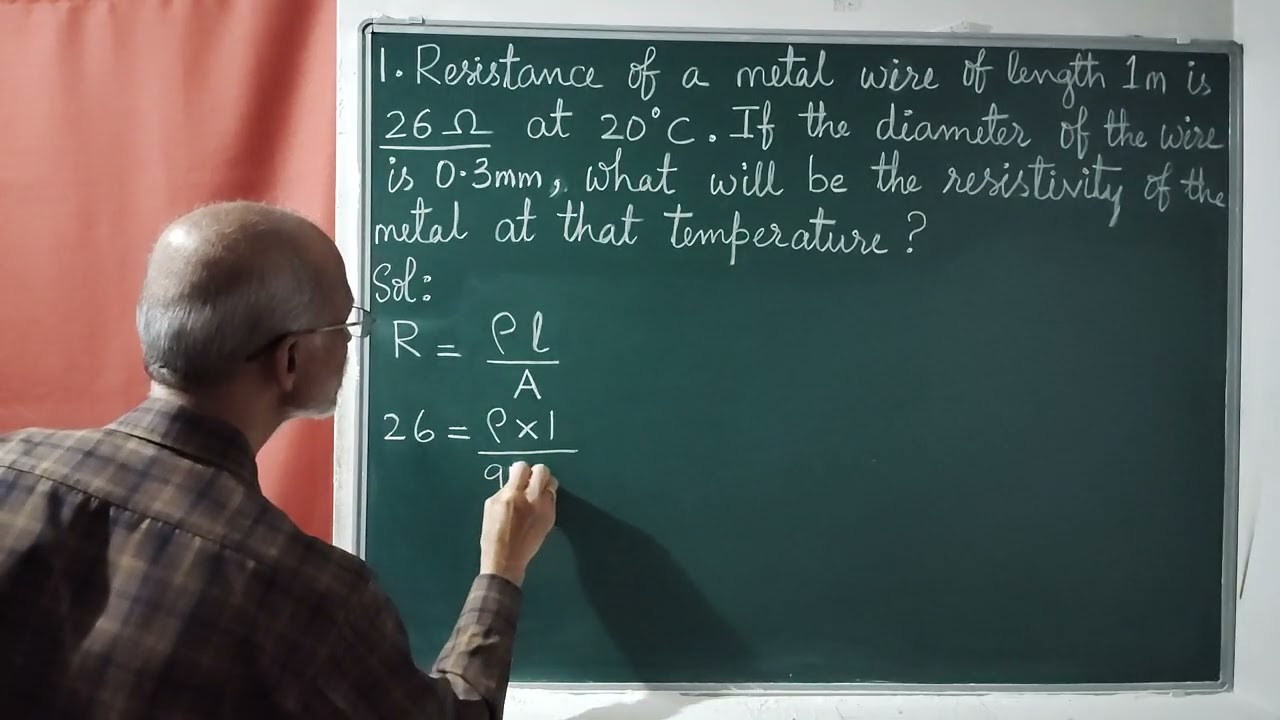 1. Resistance of a metal wire of length 1m is
26 Ω at 20°C. If the diameter of the wire
is 0.3mm, what will be the resistivity of the
metal at that temperature?
Sol:
R = ρl
A
26 = ρ×1